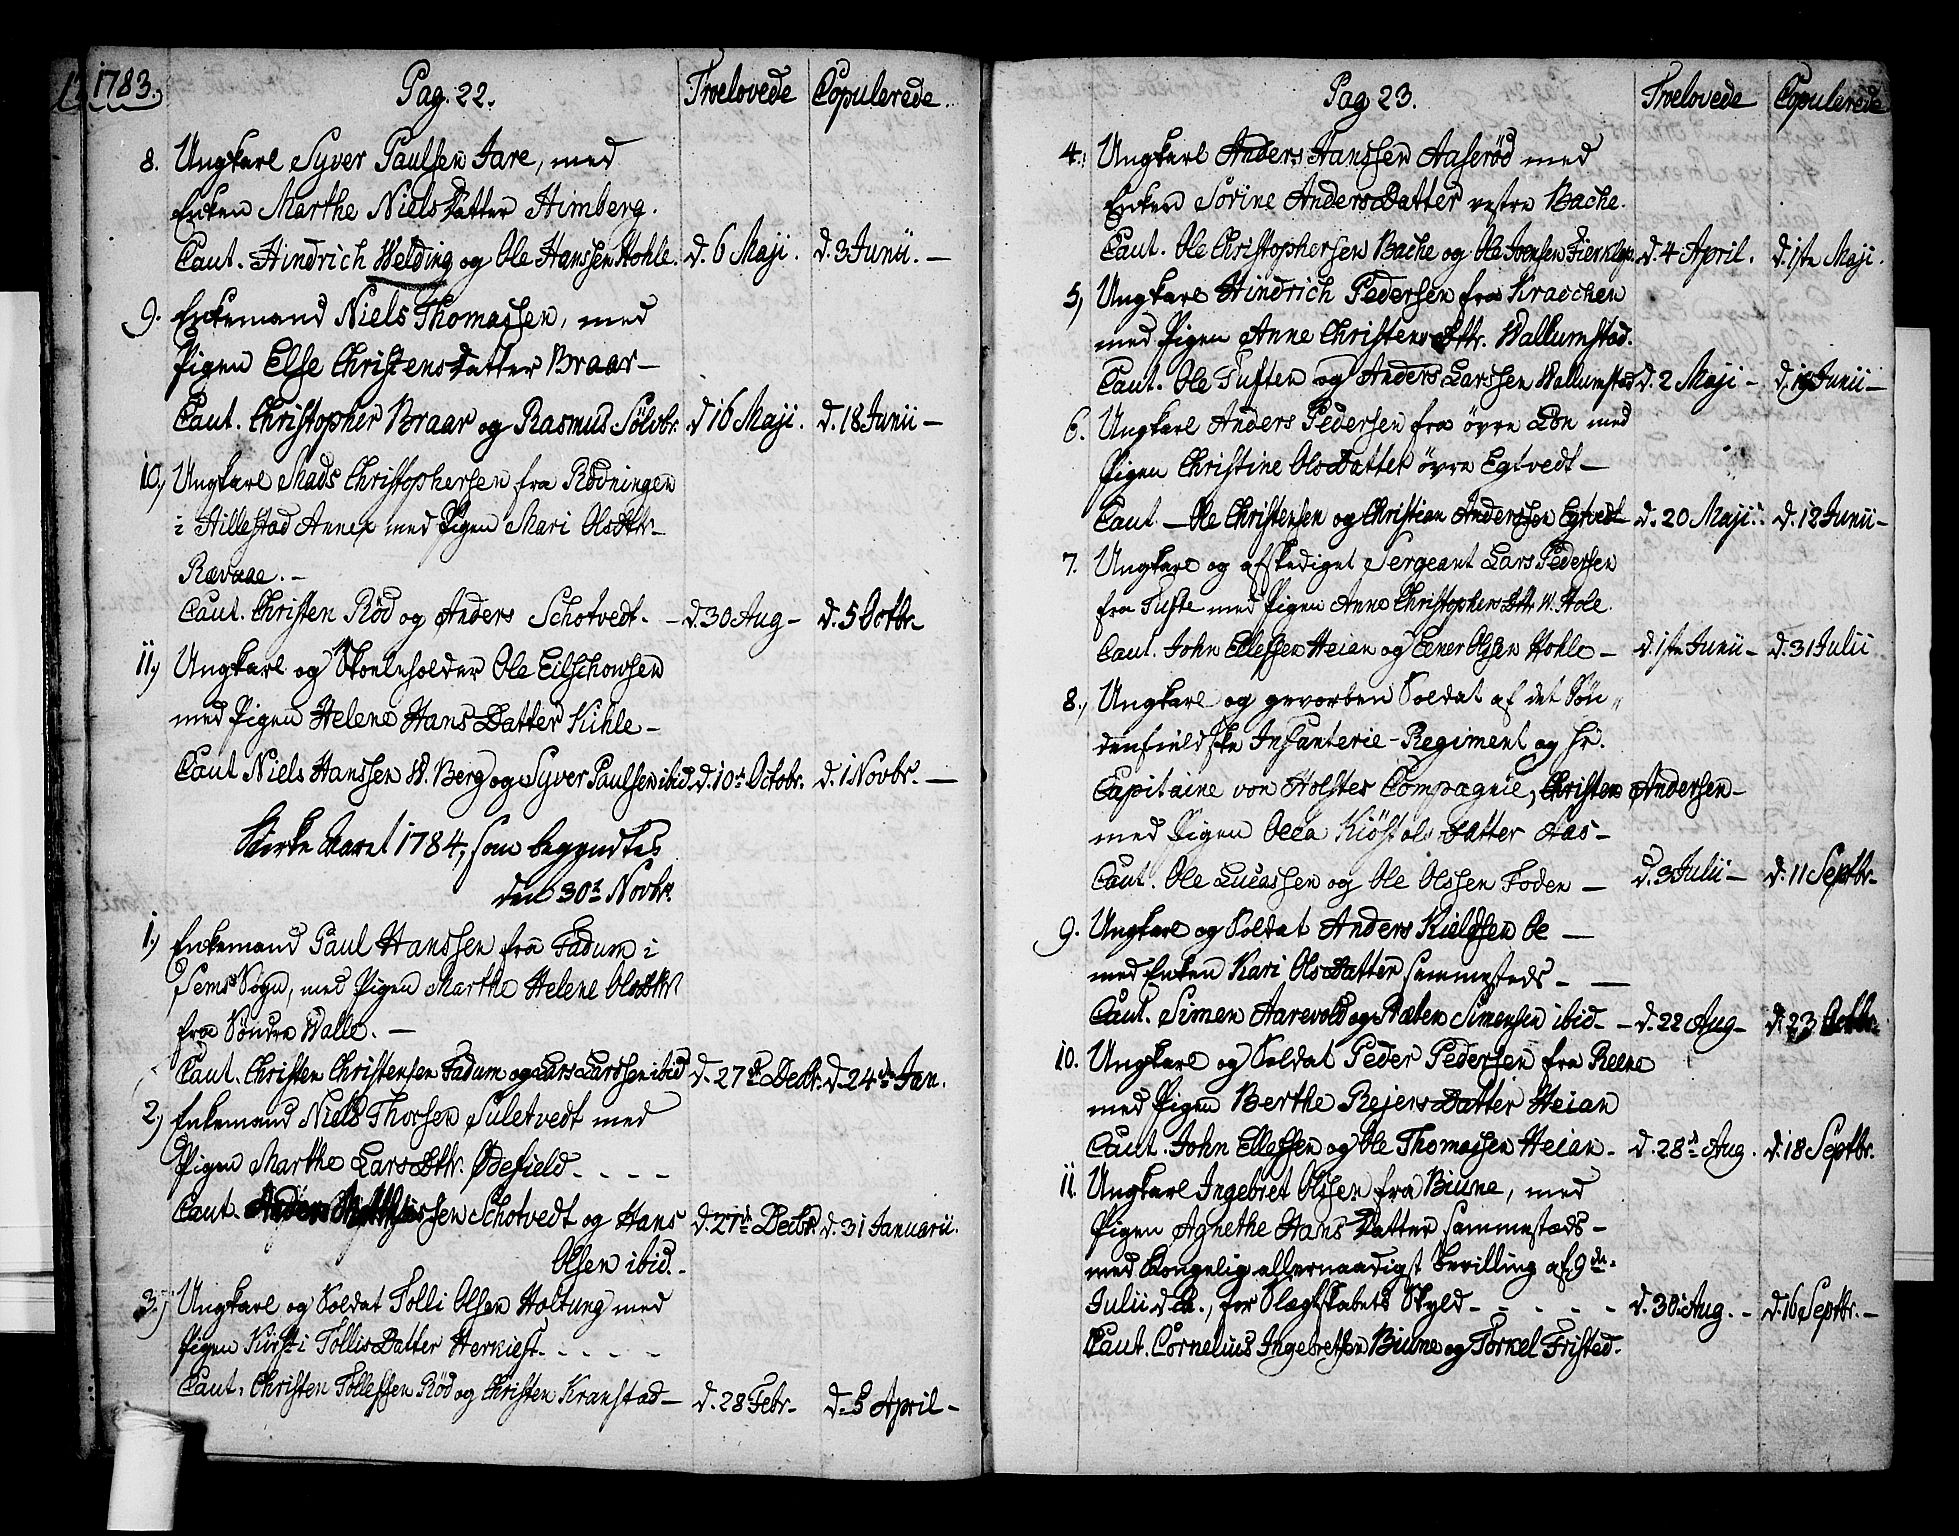 1783. Pag. 22. Troelovede Copulerede.
8. Ungkarl Syver Paulsen Jare, med
Enken Marthe NielsDatter Himberg.
Caut. Hindrich Welding og Ole Hanssen Hohle. d. 6 Maji. d. 3 Junii. —
9. Enkemand Niels Thomassen, med
Pigen Else Christensdatter Braar —
Caut. Christopher Braar og Rasmus Sölvbr. d. 16 Maji. d. 18 Junii —
10, Ungkarl Mads Christophersen fra Rödningen
i Hillestad Annex med Pigen Mari OlsDtr. —
Rævaae. —
Caut. Christen Röd og Anders Schotvedt. — d. 30 Aug — d. 5 Octbr. —
11, Ungkarl og Skoeleholder Ole Eilschowsen
med Pigen Helene HansDatter Kihle —
Caut Niels Hanssen W. Berg og Syver Paulsen ibid. d. 10 Octobr. d. 1 Novbr. —
Kirke Aaret 1784, som begyndtes
den 30 Novbr.
1, Enkemand Paul Hanssen fra Fadum i
Sems Sogn, med Pigen Marthe Helene OlsDtr
fra Söndre Walle. —
Caut. Christen Christensen Fadum og Lars Larssen ibid d. 27 Decbr. d. 24 Jan.
2, Enkemand Niels Thorsen Suletvedt med
Pigen Marthe LarsDtr. Ødefield - - - -
Caut. Schotvedt og Hans d. 27 Decbr. d. 31 Januarii.
Olsen ibid. -
3, Ungkarl og Soldat Tolli Olsen Holtung med
Pigen Kirsti TollisDatter Herkiest - - - -
Caut. Christen Tollefsen Röd og Christen Kranstad — d. 28 Febr. — d. 5 April —
Pag 23. Troelovede Copulerede
4. Ungkarl Anders Hanssen Aaseröd med
Enken Sorine AndersDatter vestre Bache.
Caut. Ole Christophersen Bache og Ole d. 4 April. d. 1ste Maji.
5, Ungkarl Hindrich Pedersen fra Kraachen
med Pigen Anne ChristensDtr. Wallumstad.
Caut. Ole Tuften og Anders Larssen Wallumstad d. 2 Maji — Junii —
6. Ungkarl Anders Pedersen fra övre Lön med
Pigen Christine OlsDatter övre Egtvedt —
Caut — Ole Christensen og Christian Anderssen Egtvedt d. 20 Maji. d. 12 Junii —
7. Ungkarl og afskediget Sergeant Lars Pedersen
fra Tufte med Pigen Anne ChristophersDtr. W. Hole.
Caut. John Ellefsen Heian og Eener Olsen Hohle — d. 1ste Junii — d. 31 Julii
8, Ungkarl og gevorben Soldat af det Sön„
denfieldske Infanterie-Regiment og Hr.
Capitaine von Holstes Compagnie, Christen Andersen —
med Pigen Olea KiöstolsDatter Aas —
Caut. Ole Lucassen og Ole Olssen Foden — d. 3 Julii — d. 11 Septbr. —
9. Ungkarl og Soldat Anders Kieldsen Oe —
med Enken Kari OlsDatter sammesteds — —
Caut. Simen Aarevold og Simensen ibid — d. 22 Aug — d. 23 Octbr.
10. Ungkarl og Soldat Peder Pedersen fra Reene
med Pigen Berthe RejersDatter Heian
Caut. John Ellefsen og Ole Thomassen Heian — d. 28 Aug. d. 18 Septbr.
11. Ungkarl Ingebret Olssen fra Biune, med
Pigen Agnethe HansDatter sammestæds —
med Kongelig allernaadigst bevilling af 9de
Julii d. A., for Slægtskabets Skyld - - - - - d. 30 Aug. — d. 16 Septbr. —
Caut. Cornelius Ingebretsen Biune og Torkel Fristad.